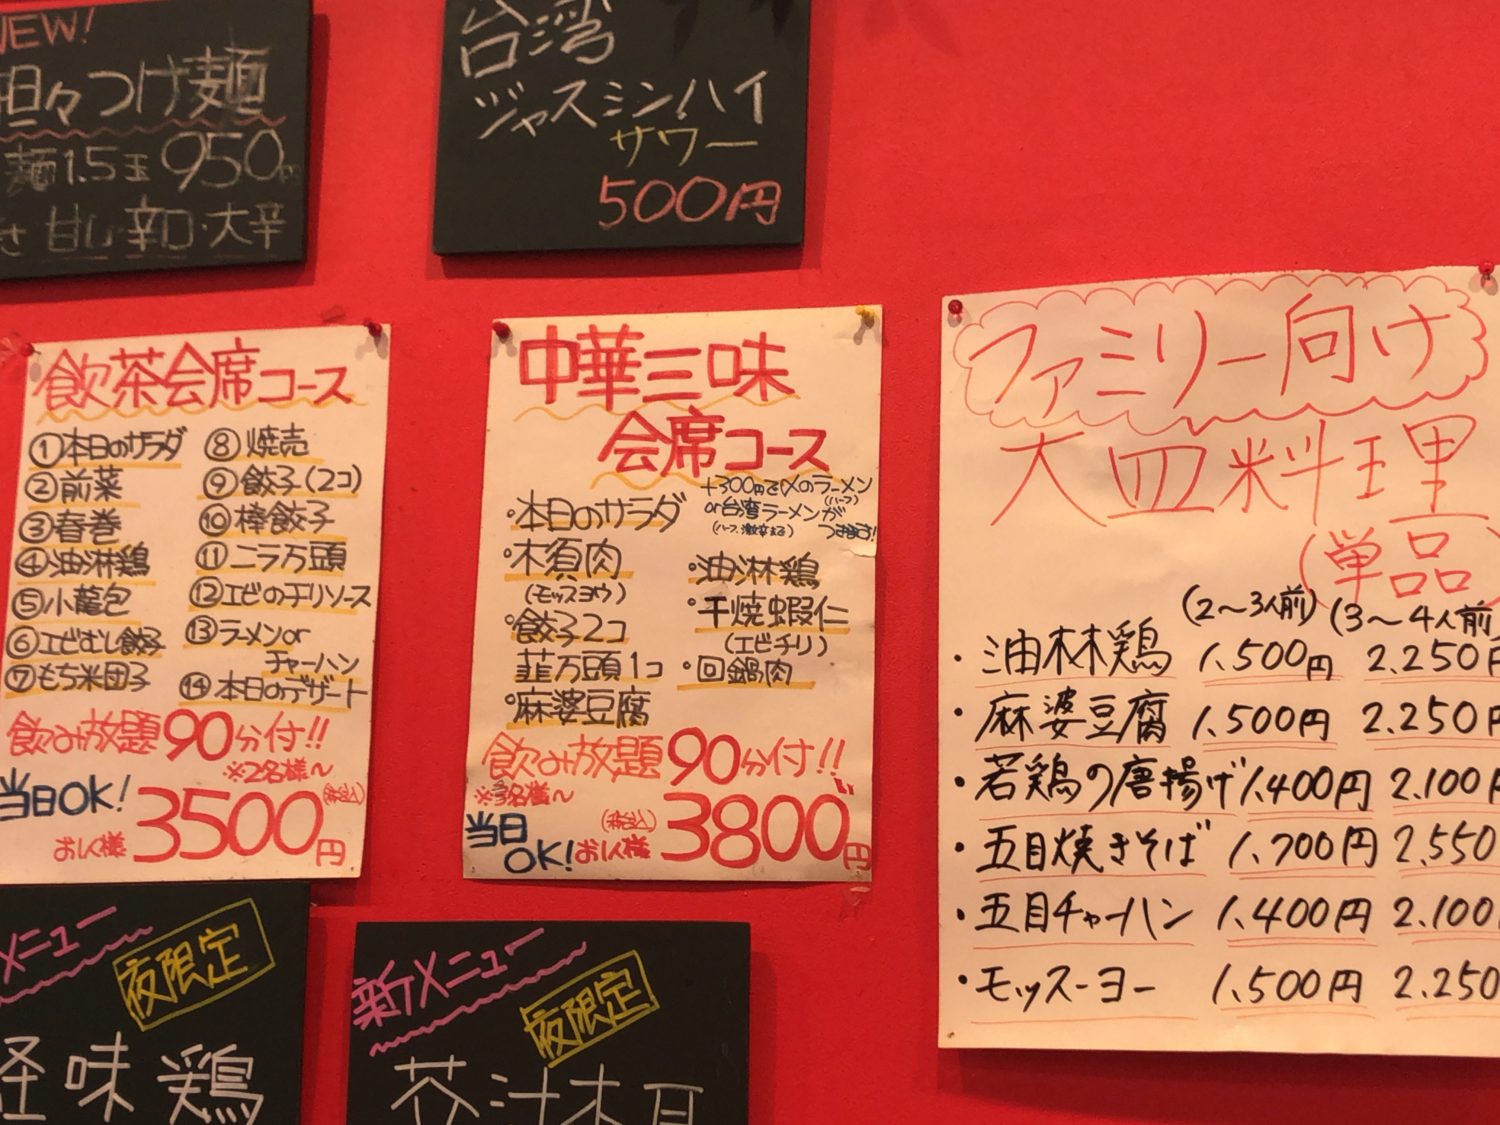 NEW!
担々つけ麺
麺1.5玉 950円
さ 甘し・辛口・大辛
台湾
ジャスミンハイ
サワー
500円
飲茶会席コース
①本日のサラダ
②前菜
③春巻
④油淋鶏
⑤小龍包
⑥エビむし餃子
⑦もち米団子
⑧焼売
⑨餃子(2コ)
⑩棒餃子
⑪ニラ万頭
⑫エビのチリソース
⑬ラーメンor
チャーハン
⑭本日のデザート
飲み放題90分付!!
※2名様〜
当日OK!
お一人様 3500円(税込)
中華三味
会席コース
+300円で〆のラーメン
(ハーフ)
or台湾ラーメンが
(ハーフ、激辛まる)
つきます!
・本日のサラダ
・木須肉
(モッスヨウ)
・餃子2コ
韮万頭1コ
・麻婆豆腐
・油淋鶏
・干焼蝦仁
(エビチリ)
・回鍋肉
飲み放題90分付!!
※3名様〜
当日
OK!
お一人様 (税込) 3800円
ファミリー向け
大皿料理
(単品)
(2〜3人前) (3〜4人前
・油林鶏 1,500円 2.250円
・麻婆豆腐 1,500円 2.250円
・若鶏の唐揚げ 1,400円 2.100円
・五目焼きそば 1,700円 2,550
・五目チャーハン 1.400円 2.100円
・モッスーヨー 1,500円 2.250
メニュー
夜限定
怪味鶏
新メニュー
夜限定
芥汁木耳